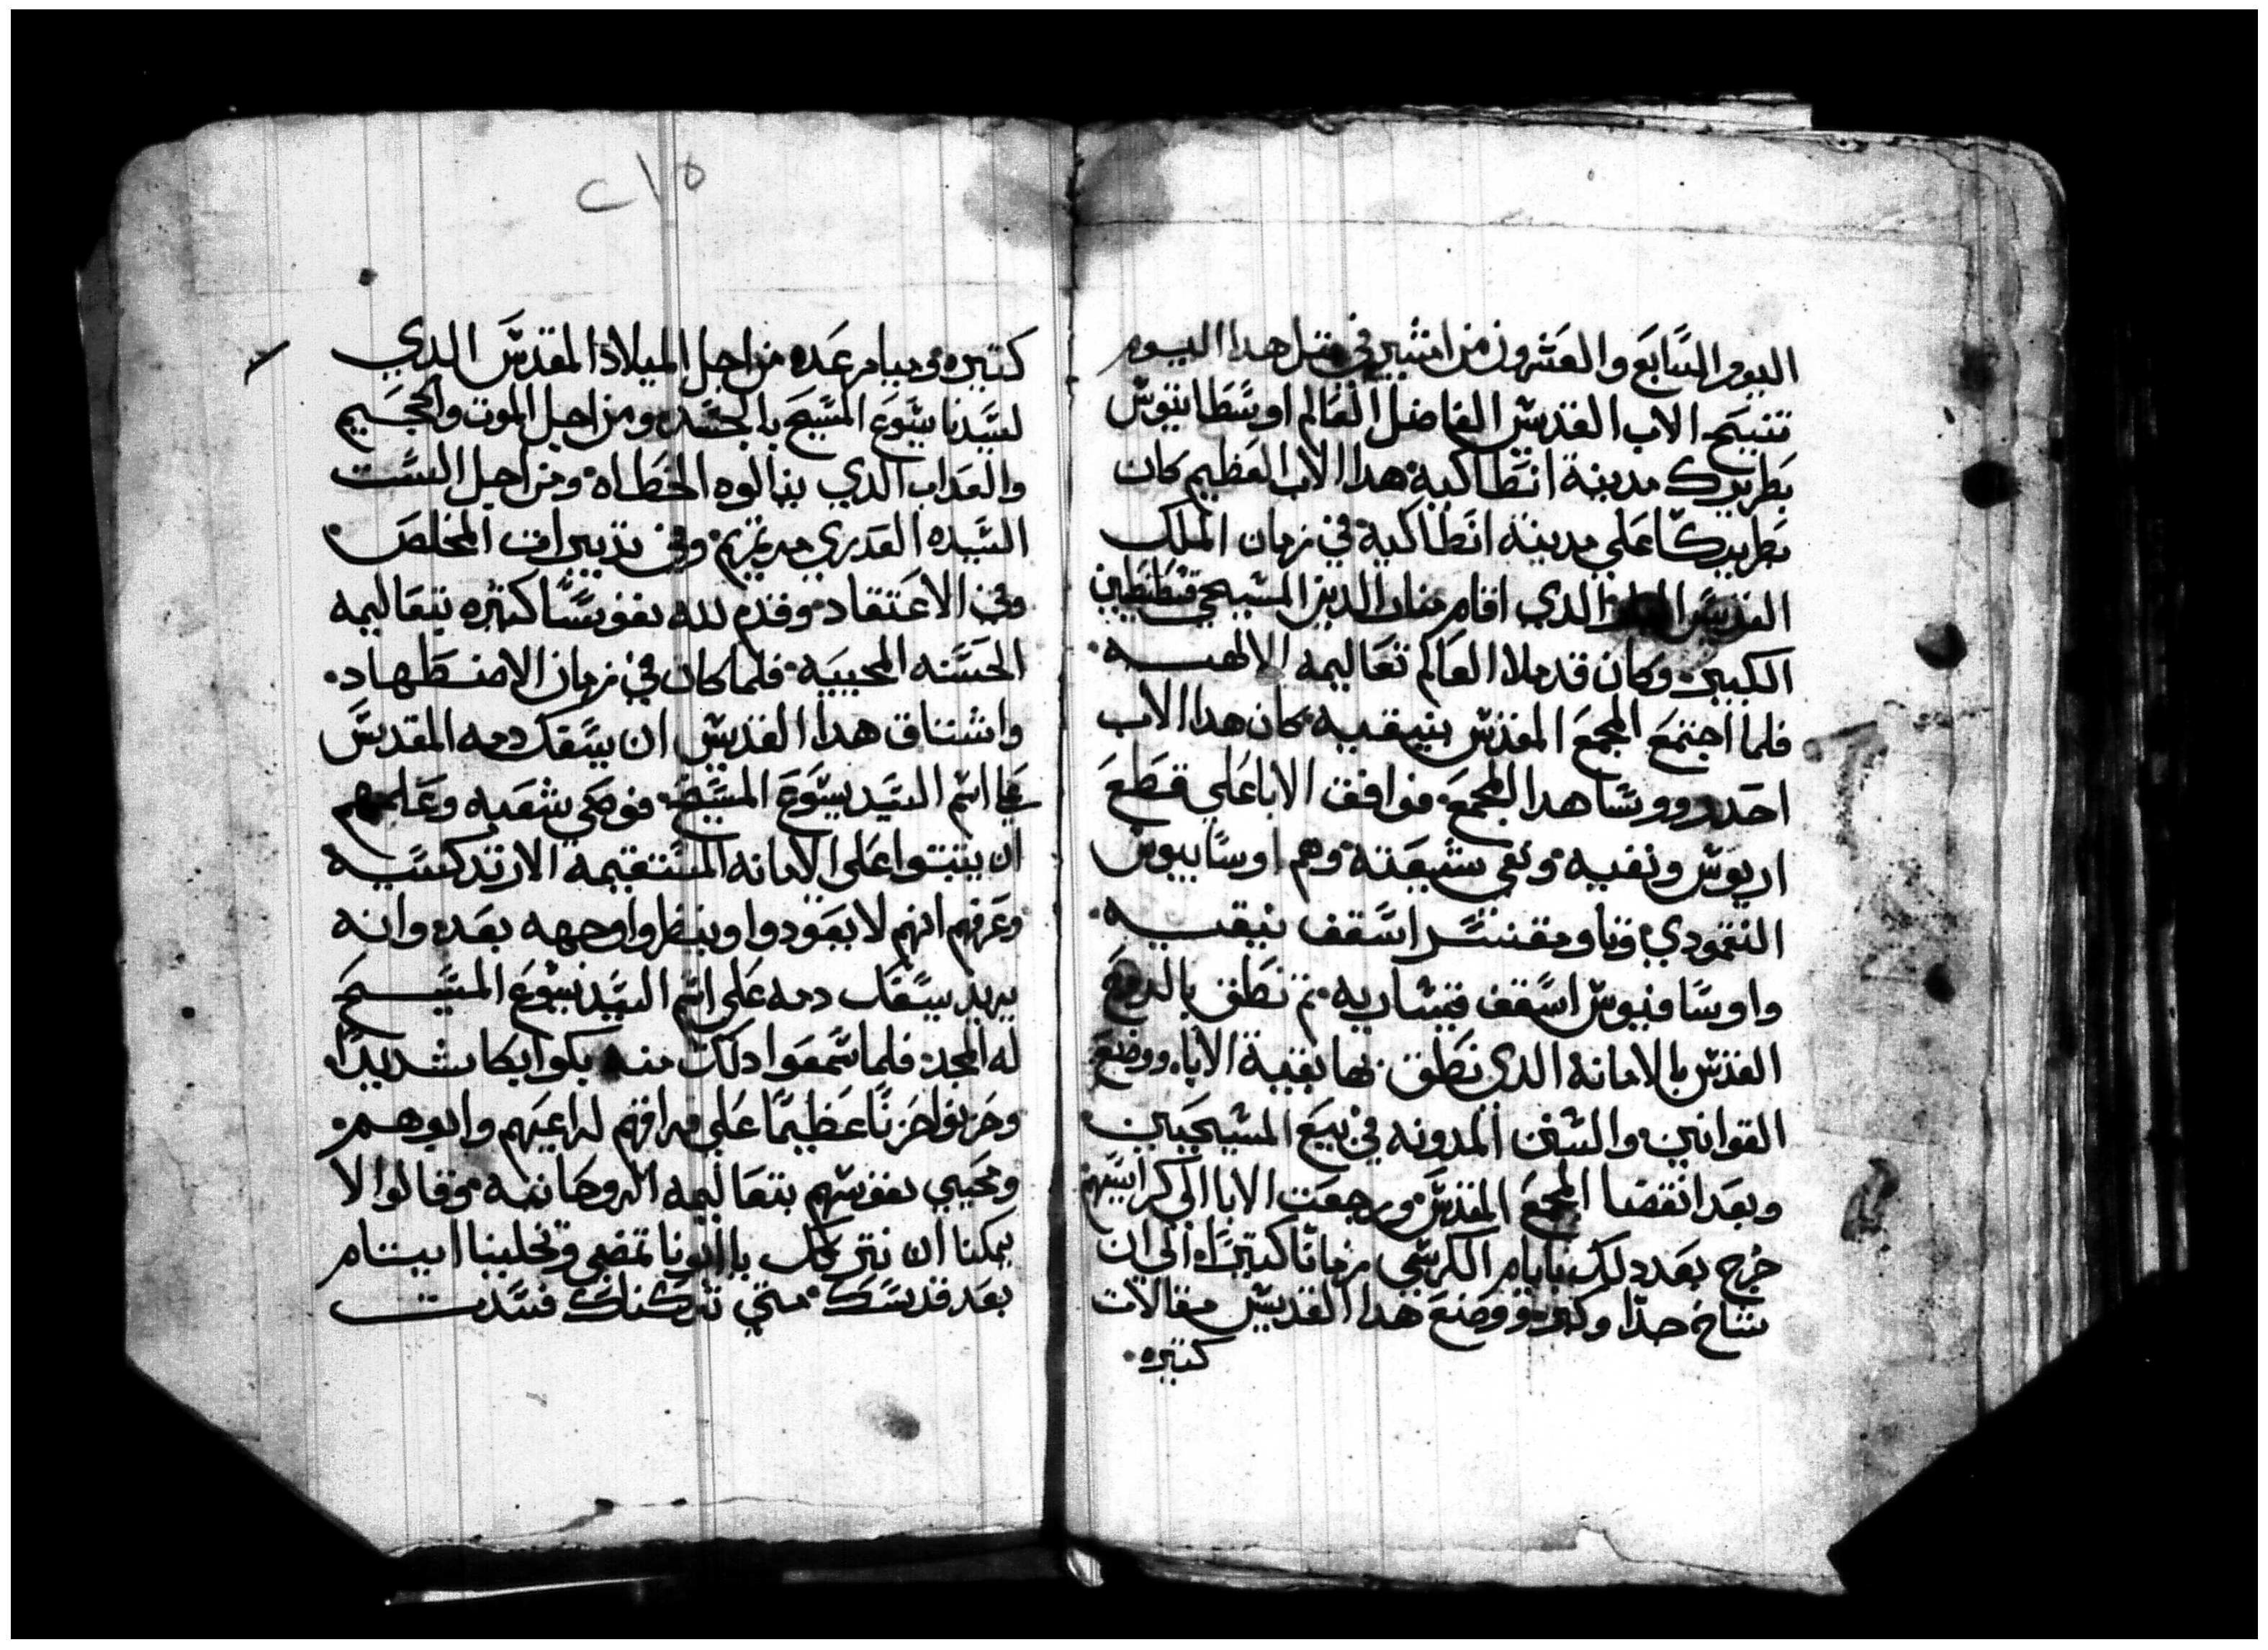 اليوم السابع والعشرون من امشير في مثل هدا اليوم
تنيح الاب القديس الفاضل العالم اوسطاتيوس
بطريرك مدينة انطاكية هدا الاب العظيم كان
بطريركا علي مدينة انطاكية في زمان الملك
القديس الدي اقام منار الدين المسيحي قسطنطين
الكبير وكان قد ملا العالم تعاليمه الالهيه
فلما اجتمع المجمع المقدس بنيقيه كان هدا الاب
احد روسا هدا المجمع فوافق الابا علي قطع
اريوس ونفيه ونفي شيعته وهم اوسابيوس
النقمودي وتاومقنس اسقف نيقيه
واوسافيوس اسقف قيساريه تم نطق بالروح
القدس بالامانه الدي نطق بها بقية الابا ووضع
القوانين والسنن المدونه في بيع المسيحيين
وبعد انقضا المجمع المقدس ورجعت الابا الي كراسيهم
خرج بعد دلك بايام الكرسي زمانا كتيرا الي ان
شاخ جدا وكبر ووضع هدا القديس مقالات
كتيره
٢١٥
كتيره وميامر عده من اجل الميلاد المقدس الدي
لسيدنا يسوع المسيح بالجسد ومن اجل الموت والجحيم
والعداب الدي ينالوه الخطاه ومن اجل الست
السيده العدري مرتمريم وفي تدبير المخلص
وفي الاعتقاد وقدم لله نفوسا كتيره بتعاليمه
الحسنه المحييه فلما كان في زمان الاضطهاد
واشتاق هدا القديس ان يسفك دمه المقدس
علي اسم السيد يسوع المسيح فوصي شعبه وعلمهم
ان يتبتوا علي الامانه المستقيمه الارتدكسيه
وعرفهم انهم لا يعودوا وينظروا وجهه بعد وانه
يريد يسفك دمه علي اسم السيد يسوع المسيح
له المجد فلما سمعوا دلك منه بكوا بكا شديدا
وحزنوا حزنا عظيما علي فراقهم لراعيهم وابوهم
ومحيي نفوسهم بتعاليمه الروحانيه وقالوا لا
يمكنا ان نتركك ياابونا تمضي وتخلينا ايتام
بعد قدسك متي تركناك فسدت